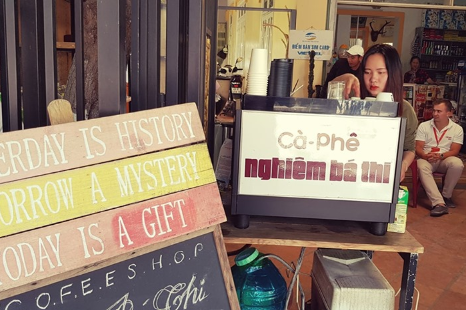 ERDAY IS HISTORY
ORROW A MYSTERY
ODAY IS A GIFT
COFEE S.H.O.P
ĐIỂM BÁN SIM CARD
VIETTEL
Cà-Phê
nghiêm bá thi